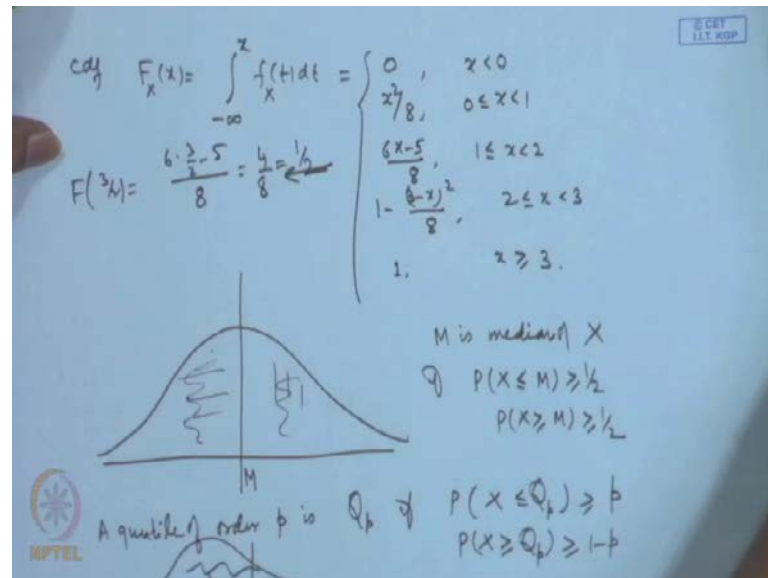 © CET
I.I.T. KGP
cdf F_X(x) = ∫_{-∞}^{x} f_X(t) dt = { 0, x < 0
x²/8, 0 ≤ x < 1
(6x-5)/8, 1 ≤ x < 2
1 - (3-x)²/8, 2 ≤ x < 3
1, x ≥ 3.
F(3/2) = (6·3/2 - 5)/8 = 4/8 = 1/2
M is median of X
if P(X ≤ M) ≥ 1/2
P(X ≥ M) ≥ 1/2
M
A quantile of order p is Q_p if P(X ≤ Q_p) ≥ p
P(X ≥ Q_p) ≥ 1-p
NPTEL